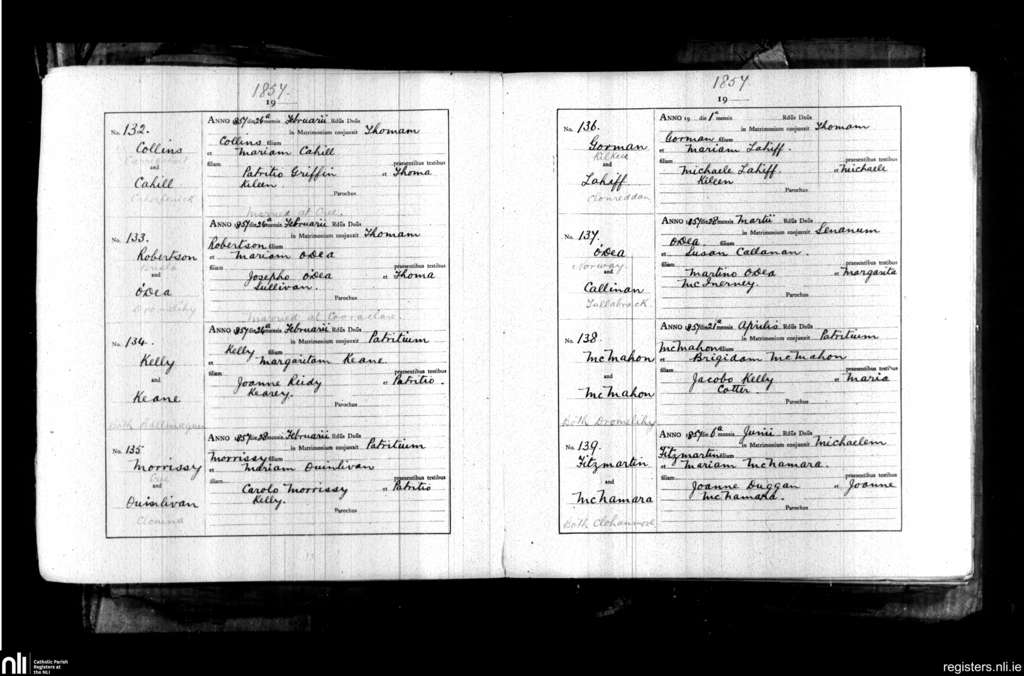 1857.
19
No. 132.
Collins
and
Cahill
ANNO 1857 die 26a mensis Februarii Rdus Dnus
in Matrimonium conjunxit Thomam
Collins filium
et Mariam Cahill
filiam praesentibus testibus
Patritio Griffin et Thoma
Kileen
Parochus
Married at Cree.
No. 133.
Robertson
and
O'Dea
Dromelihy
ANNO 1857 die 26a mensis Februarii Rdus Dnus
in Matrimonium conjunxit Thomam
Robertson filium
et Mariam O'Dea
filiam praesentibus testibus
Josepho O'Dea et Thoma
Sullivan.
Parochus
Married at Cooraclare.
No. 134.
Kelly
and
Keane
Both
ANNO 1857 die 26a mensis Februarii Rdus Dnus
in Matrimonium conjunxit Patritium
Kelly filium
et Margaritam Keane
filiam praesentibus testibus
Joanne Reidy et Patritio.
Kearey.
Parochus
No. 135
Morrissy
Cree
and
Quinlivan
Clonina
ANNO 1857 die 28 mensis Februarii Rdus Dnus
in Matrimonium conjunxit Patritium
Morrissy filium
et Mariam Quinlivan
filiam praesentibus testibus
Carolo Morrissy et Patritio
Kelly
Parochus
1857
19
No. 136.
Gorman
Kilkee
and
Lahiff
Clonreddan
ANNO 19 die 1a mensis Rdus Dnus
in Matrimonium conjunxit Thomam
Gorman filium
et Mariam Lahiff.
filiam praesentibus testibus
Michaele Lahiff. et Michaele
Kileen
Parochus
No. 137
O'Dea
Norway
and
Callinan
Tullabrack
ANNO 1857 die 28 mensis Martii Rdus Dnus
in Matrimonium conjunxit Senanum
O'Dea. filium
et Susan Callanan.
filiam praesentibus testibus
Martino O'Dea et Margarita
McInerney.
Parochus
No. 138
McMahon
and
McMahon
Both Dromelihy
ANNO 1857 die 21a mensis Aprilis Rdus Dnus
in Matrimonium conjunxit Patritium
McMahon filium
et Brigidam McMahon
filiam praesentibus testibus
Jacobo Kelly et Maria
Cotter.
Parochus
No. 139.
Fitzmartin
and
McNamara
Both Clohanmore
ANNO 1857 die 6a mensis Junii Rdus Dnus
in Matrimonium conjunxit Michaelem
Fitzmartin filium
et Mariam McNamara.
filiam praesentibus testibus
Joanne Duggan et Joanne
McNamara.
Parochus
nli
Catholic Parish
Registers at
the NLI
registers.nli.ie